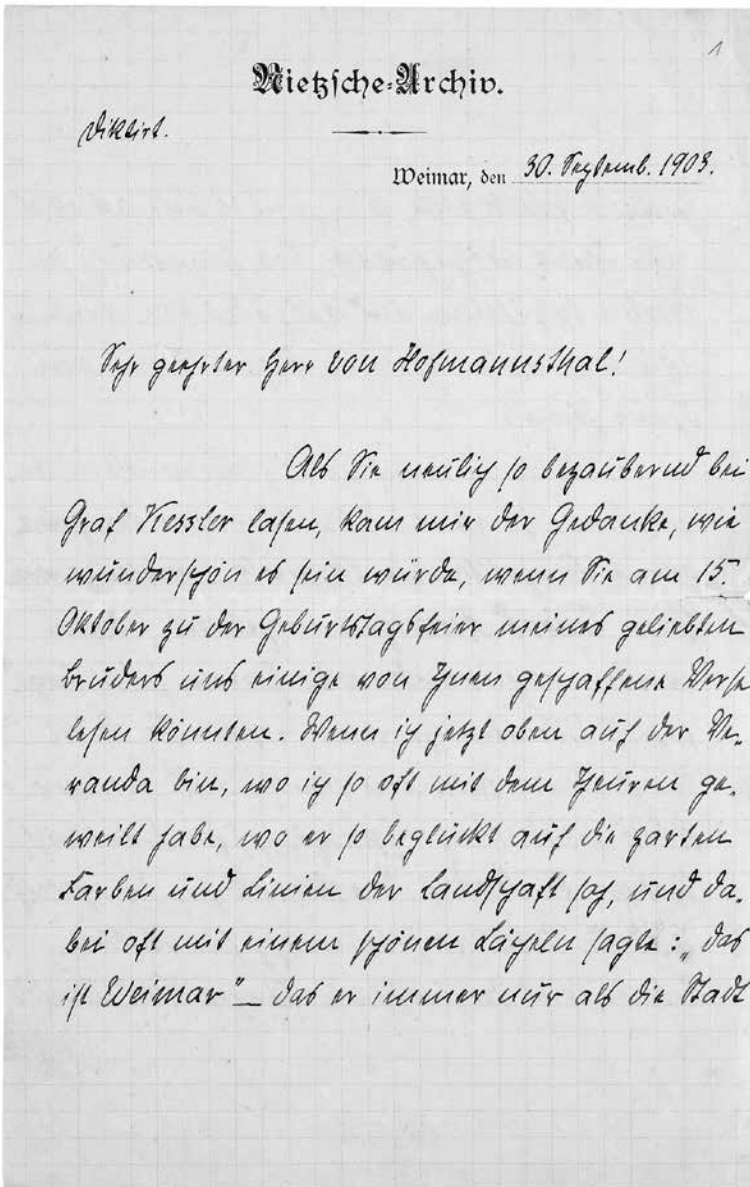 1
Nietzsche-Archiv.
Diktirt.
Weimar, den 30. Septemb. 1903.
Sehr geehrter Herr von Hofmannsthal!
Als Sie neulich so bezaubernd bei
Graf Kessler lasen, kam mir der Gedanke, wie
wunderschön es sein würde, wenn Sie am 15.
Oktober zu der Geburtstagsfeier meines geliebten
Bruders uns einige von Ihnen geschaffene Verse
lesen könnten. Wenn ich jetzt oben auf der Ve-
randa bin, wo ich so oft mit dem Theuren ge-
weilt habe, wo er so beglückt auf die zarten
Farben und Linien der Landschaft sah, und da-
bei oft mit einem schönen Lächeln sagte: „das
ist Weimar" — das er immer nur als die Stadt